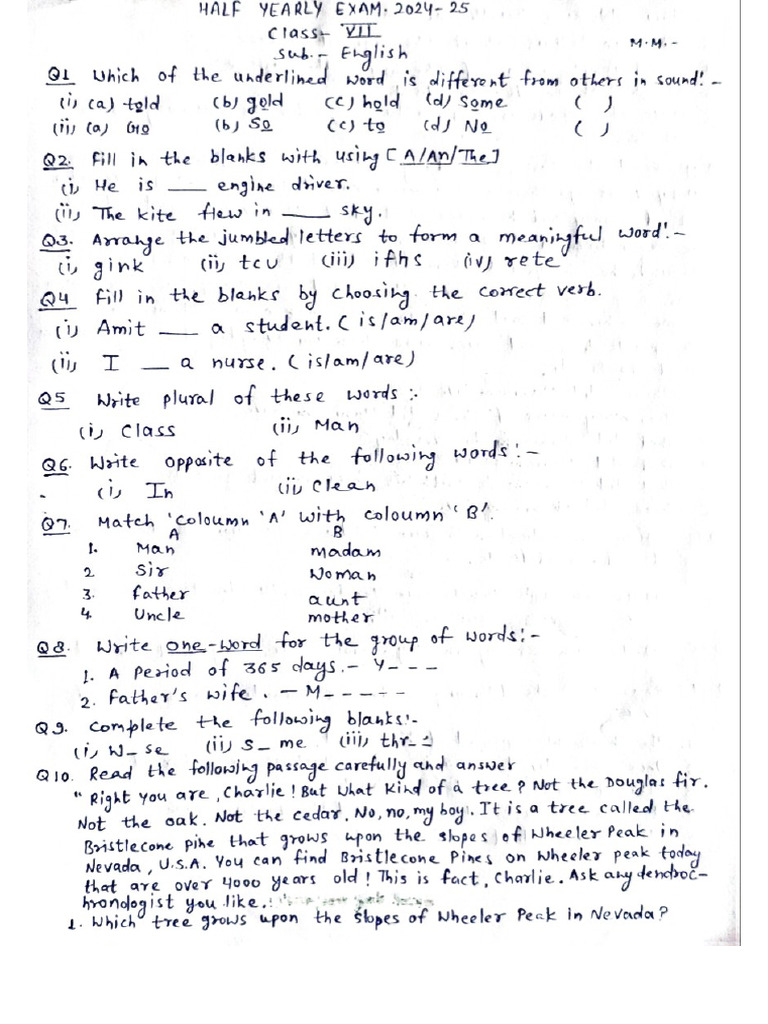 HALF YEARLY EXAM. 2024-25
Class- VII
Sub.- English
M.M.-
Q1 Which of the underlined word is different from others in sound!-
(i) (a) told (b) gold (c) hold (d) Some ( )
(ii) (a) Go (b) So (c) to (d) No ( )
Q2. Fill in the blanks with using [A/An/The]
(i) He is ___ engine driver.
(ii) The kite flew in ___ sky.
Q3. Arrange the jumbled letters to form a meaningful word!-
(i) gink (ii) tcu (iii) ifhs (iv) rete
Q4 Fill in the blanks by choosing the correct verb.
(i) Amit ___ a student. (is/am/are)
(ii) I ___ a nurse. (is/am/are)
Q5 Write plural of these words :-
(i) Class (ii) Man
Q6. Write opposite of the following words!-
(i) In (ii) Clean
Q7. Match 'Coloumn 'A' with coloumn 'B'.
A B
1. Man madam
2 Sir Woman
3. Father aunt
4. Uncle mother.
Q8. Write one-word for the group of words!-
1. A Period of 365 days.- Y- - -
2. Father's wife. - M- - - - -
Q9. Complete the following blanks!-
(i) W_se (ii) S_me (iii) thr_ _
Q10. Read the following passage carefully and answer
"Right you are, Charlie! But what kind of a tree? Not the Douglas fir.
Not the oak. Not the cedar. No, no, my boy. It is a tree called the
Bristlecone pine that grows upon the slopes of Wheeler Peak in
Nevada, U.S.A. You can find Bristlecone Pines on Wheeler peak today
that are over 4000 years old! This is fact, Charlie. Ask any dendroc-
hronologist you like.
1. Which tree grows upon the slopes of Wheeler Peak in Nevada?